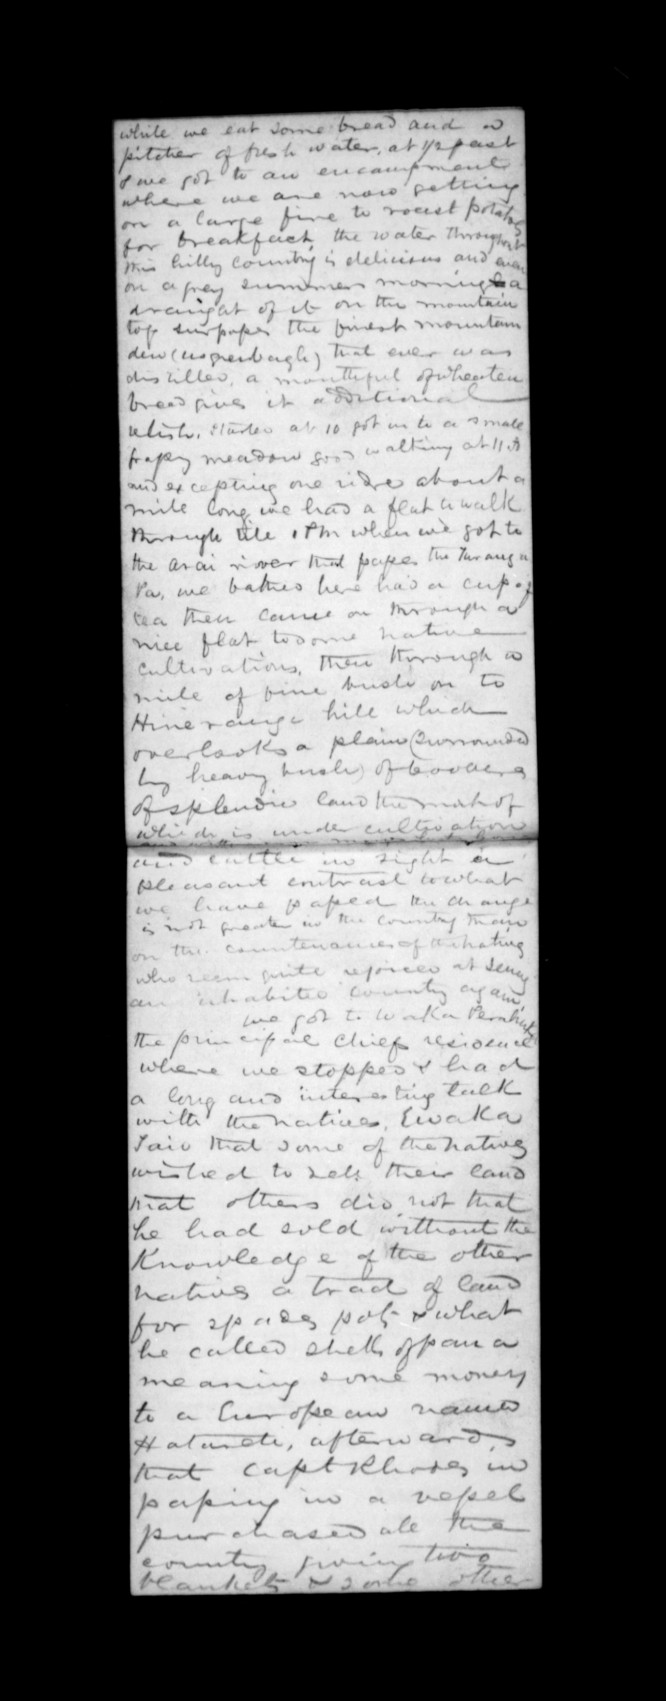 while we eat some bread and a
pitcher of fresh water, at 1/2 past
8 we got to an encampment
where we are now getting
on a large fire to roast potatoes
for breakfast, the water throughout
this hilly country is delicious and even
on a grey summers morning a
draught of it on the mountain
top surpasses the finest mountain
dew (usquebaugh) that ever was
distilled, a mouthful of wheaten
bread gives it additional
relish. Started at 10 got in to a small
grassy meadow good walking at 11
and excepting one ridge about a
mile long we had a flat walk
through till 1 PM when we got to
the arai river that passes the Turanga
Pa, we bathed here had a cup of
tea then came on through a
nice flat to some native
cultivations, then through a
mile of fine bush on to
Hinerauga hill which
overlooks a plain (surrounded
by heavy bush) of acres
of splendid land the most of
which is under cultivation
and cattle in sight a
pleasant contrast to what
we have passed the change
is not greater in the country than
on the countenances of the natives
who seem quite rejoiced at seeing
an inhabited country again,
we got to Waka Perahuka
the principal chiefs residence
where we stopped & had
a long and interesting talk
with the natives, Ewaka
said that some of the natives
wished to sell their land
that others did not that
he had sold without the
knowledge of the other
natives a tract of land
for spades pots & what
he called shells of paua
meaning some money
to a European named
afterwards
that Capt Rhodes in
passing in a vessel
purchased all the
country giving two
blankets & some other